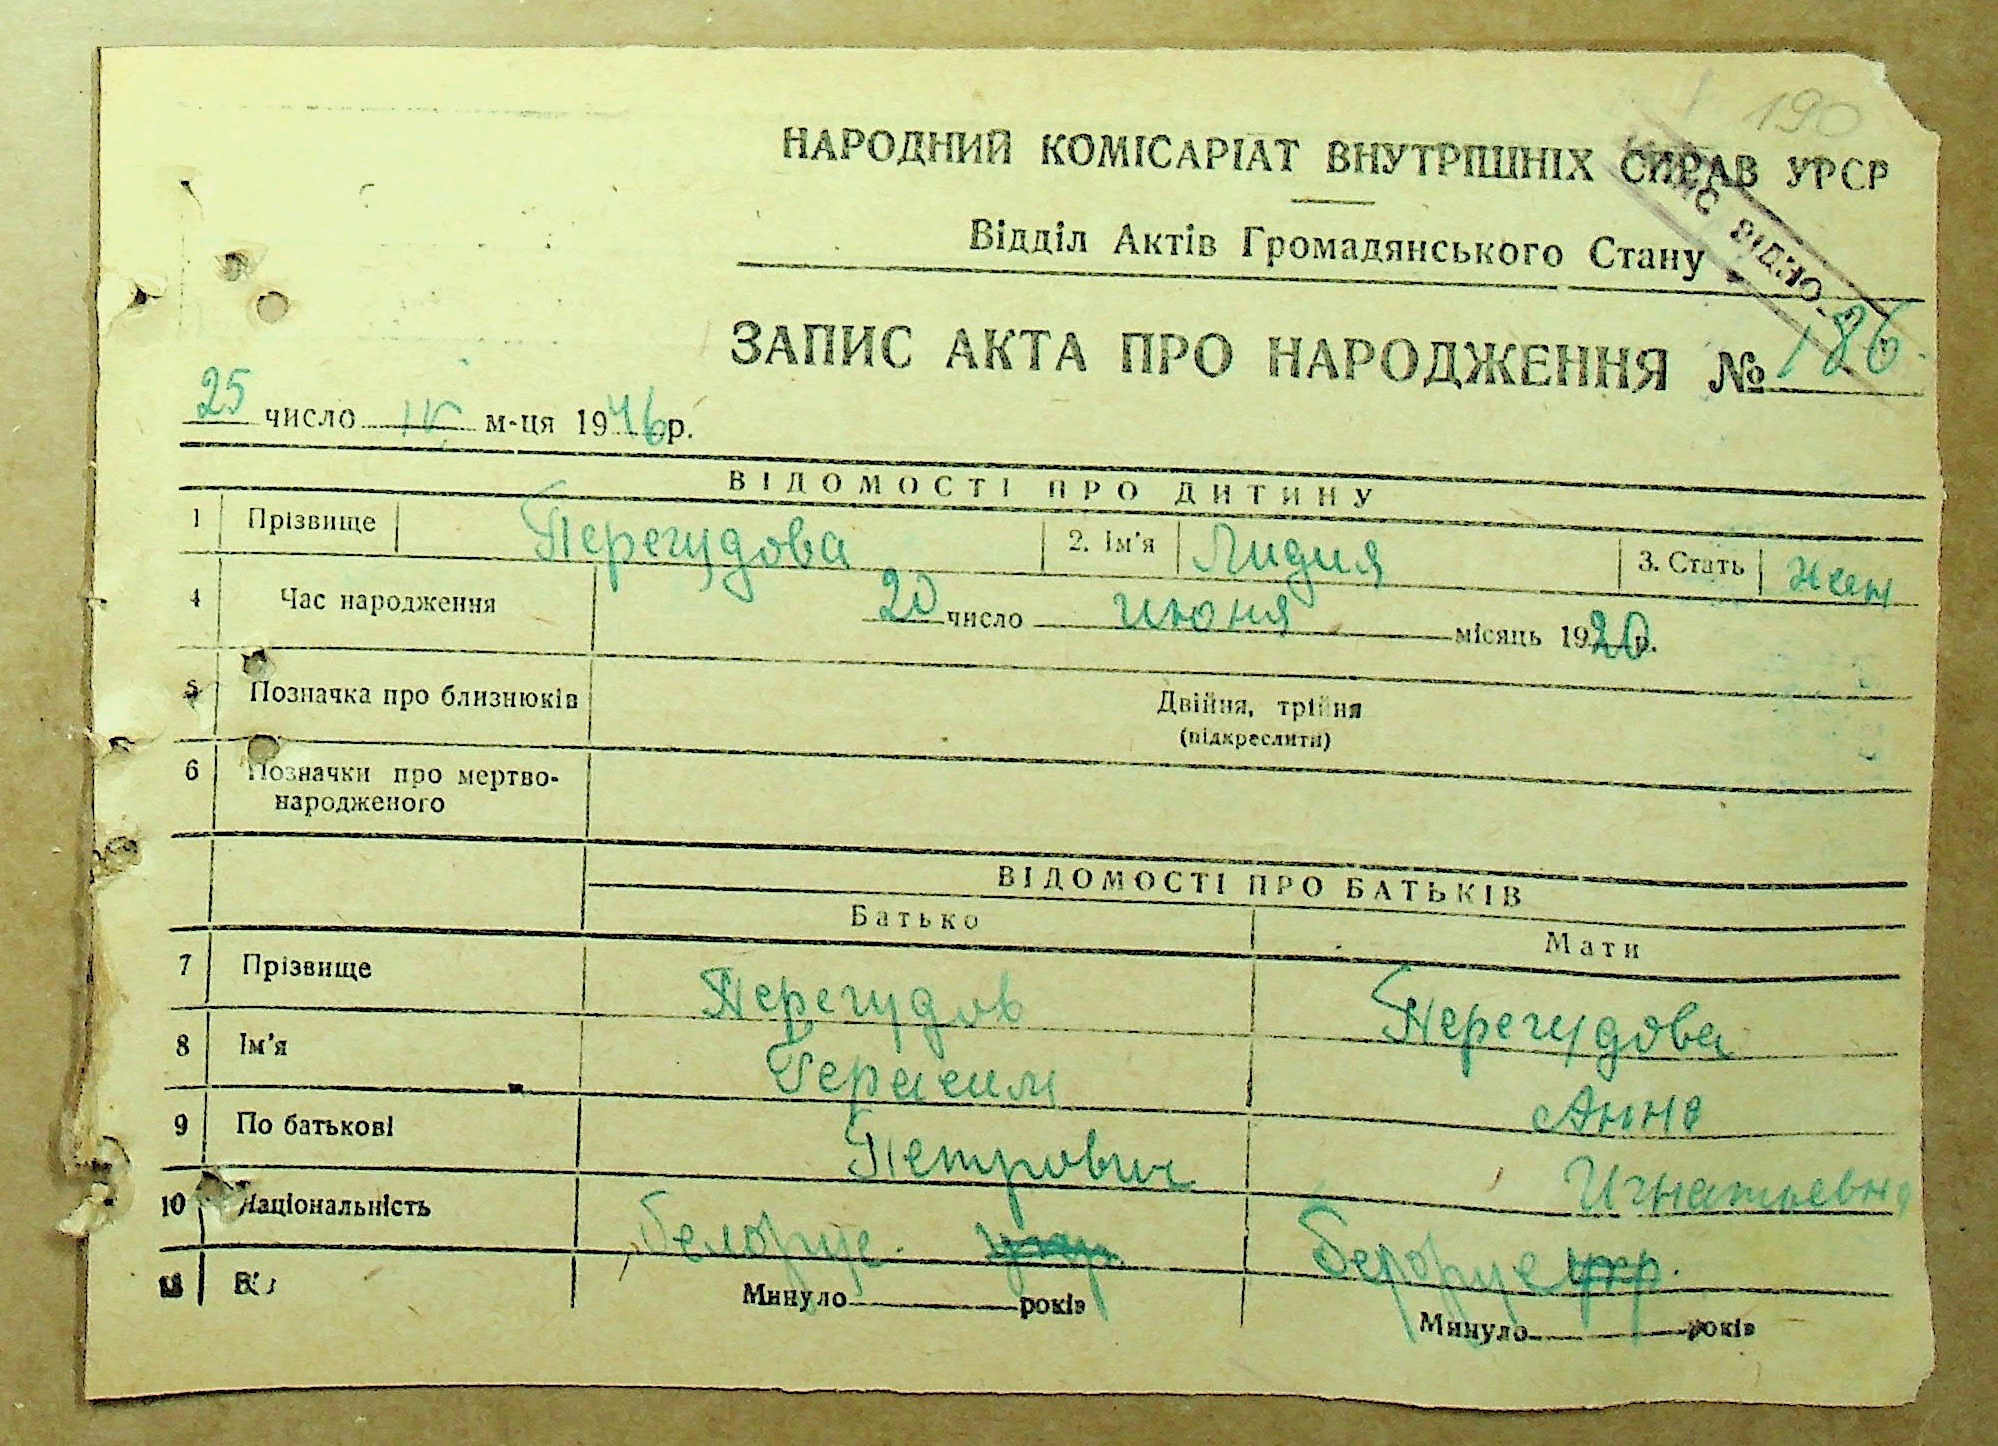 190
НАРОДНИЙ КОМІСАРІАТ ВНУТРІШНІХ СПРАВ УРСР
Відділ Актів Громадянського Стану
ЗАПИС ВІДНО
ЗАПИС АКТА ПРО НАРОДЖЕННЯ № 186
25 число IV м-ця 1946 р.
ВІДОМОСТІ ПРО ДИТИНУ
1 Прізвище Перегудова 2. Ім'я Лидия 3. Стать жен
4 Час народження 20 число июня місяць 1920 р.
5 Позначка про близнюків Двійня, трійня
(підкреслити)
6 Позначки про мертво-
народженого
ВІДОМОСТІ ПРО БАТЬКІВ
Батько Мати
7 Прізвище Перегудов Перегудова
8 Ім'я Герасим Анна
9 По батькові Петрович Игнатьевна
10 Національність белорус укр белорус укр.
11 Вік Минуло років Минуло років